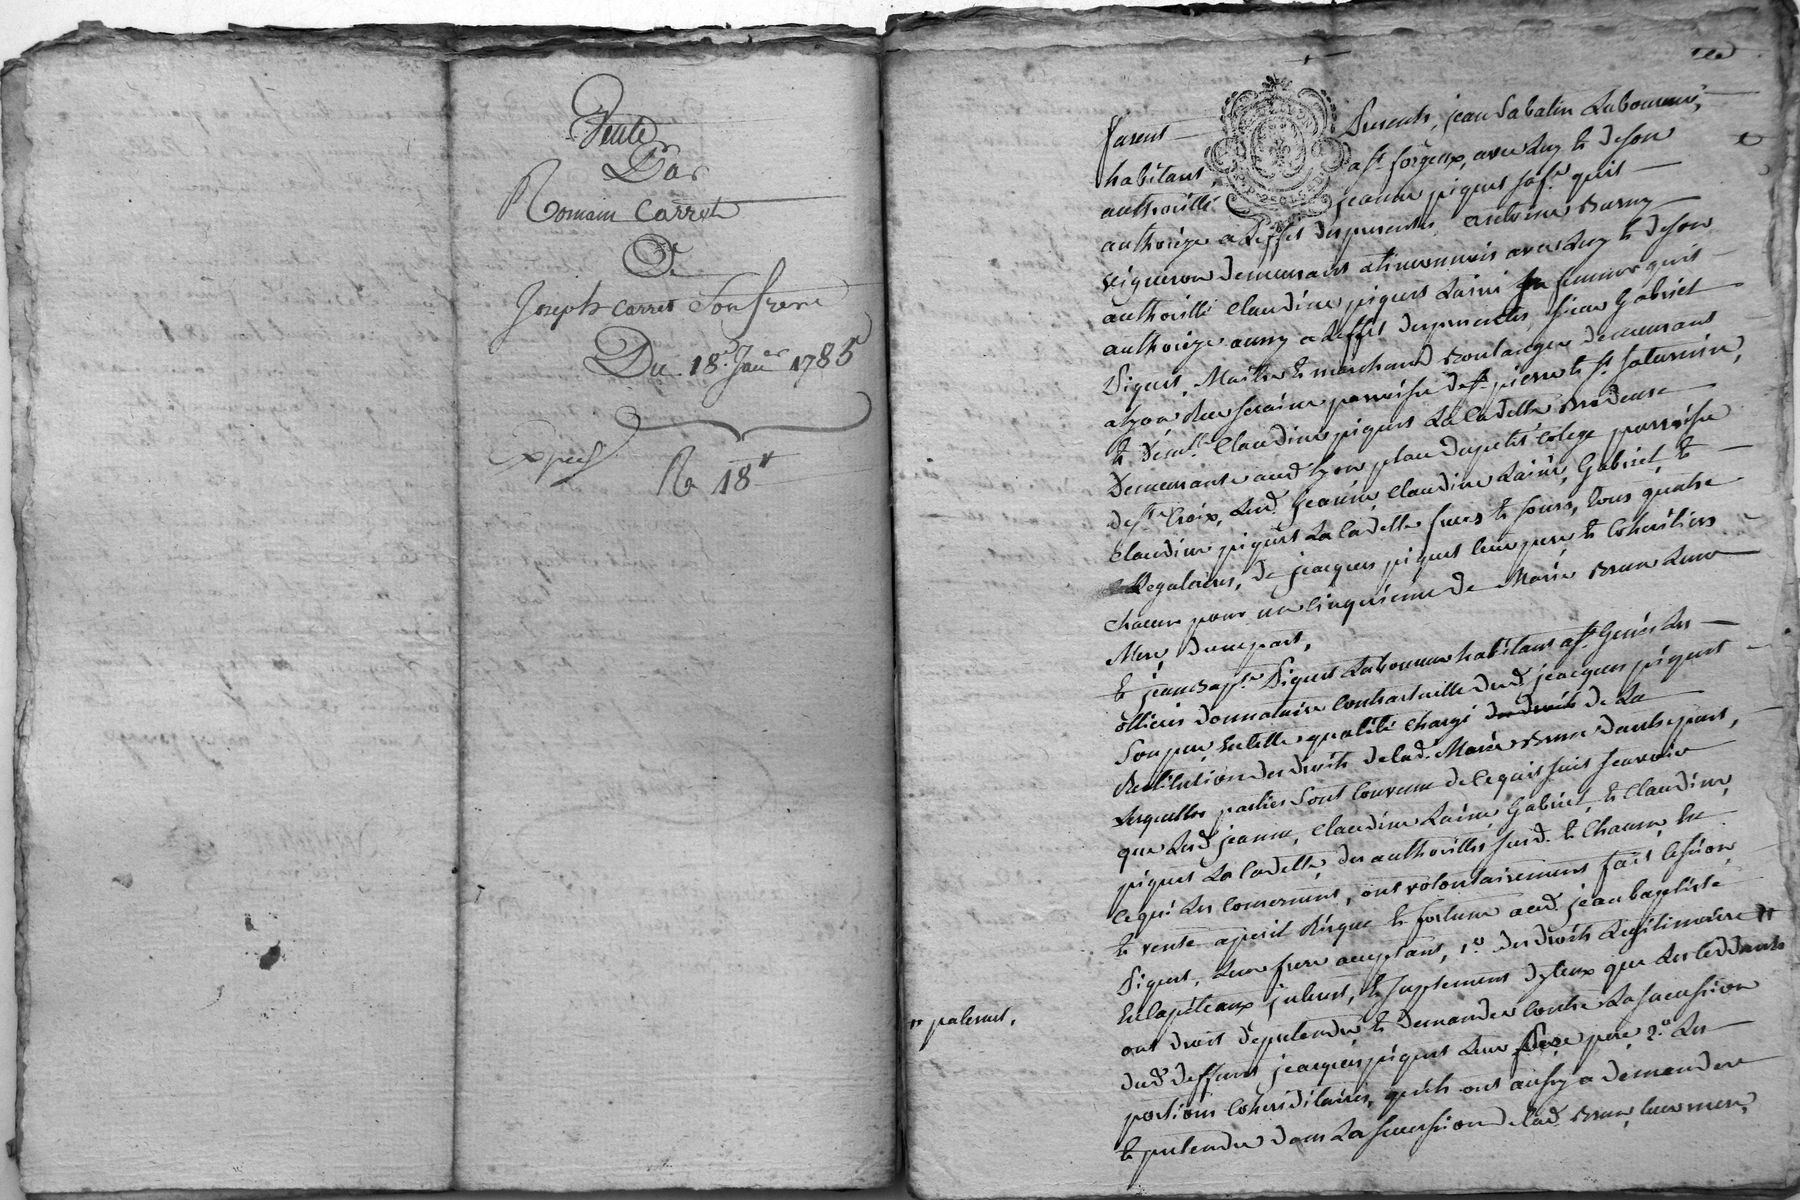 Vente
Par
Romain Carret
De
Joseph Carret Son frere
Du 18e Janer 1785
Exped
Re 18
furent Presents, jean Sabatin Laboureur,
habitant a st forgeux, avec Luy et de Son
authorité jeanne piquet sa fe quil
authorize a Leffet des presentes, Antoine Burny
vigneron demeurant avec Luy et de Son
authorité Claudine piquet Lainé sa femme quil
authorize aussy a Leffet des presentes, sieur Gabriel
Piquet, Maitre et marchand Boulanger demeurant
a Lyon Rue paroisse de st pierre et st saturnin,
et Demlle Claudine piquet La Cadette Brodeuse
Demeurante aud Lyon place du petit Colege parroisse
de ste Croix, Lesd. jeanne, Claudine Lainé, Gabriel, et
Claudine piquet La Cadette freres et soeurs, tous quatre
Legataires, de jeacques piquet leur pere et Coheritiers
chacun pour un Cinquieme de Marie Brun Leur
Mere, Dune part,
Et jean Bapte. Piquet Laboureur habitant a st Genis Les
ollieres donnataire Contractuelle dud. jeacques piquet
Son pere, En telle qualité chargé des droits de La
Restitution des droits de Lad. Marie Brun Dautre part,
Lesquelles parties Sont Convenu de Ce qui suit sçavoir
que Lesd jeanne, Claudine Lainé Gabriel, et Claudine
piquet La Cadette, des authorités susd. et Chacun En
ce qui Les Concernent, ont volontairement fait Cession
et vente a peril Risque et fortune aud. jean baptiste
Piquet, Leur frere acceptant, 1o. des droits Legitimaire #
En Capiteaux jnterest, et suplement dyceux que Les Ceddants
# palernet.
ont droit de pretendre et demander Contre La succession
dud. deffunt jeacques piquet Leur pere 2o. Les
portions Coheriditaires, quils ont aussy a demander
et pretendre dans La succession de lad. Brun, leur mere,